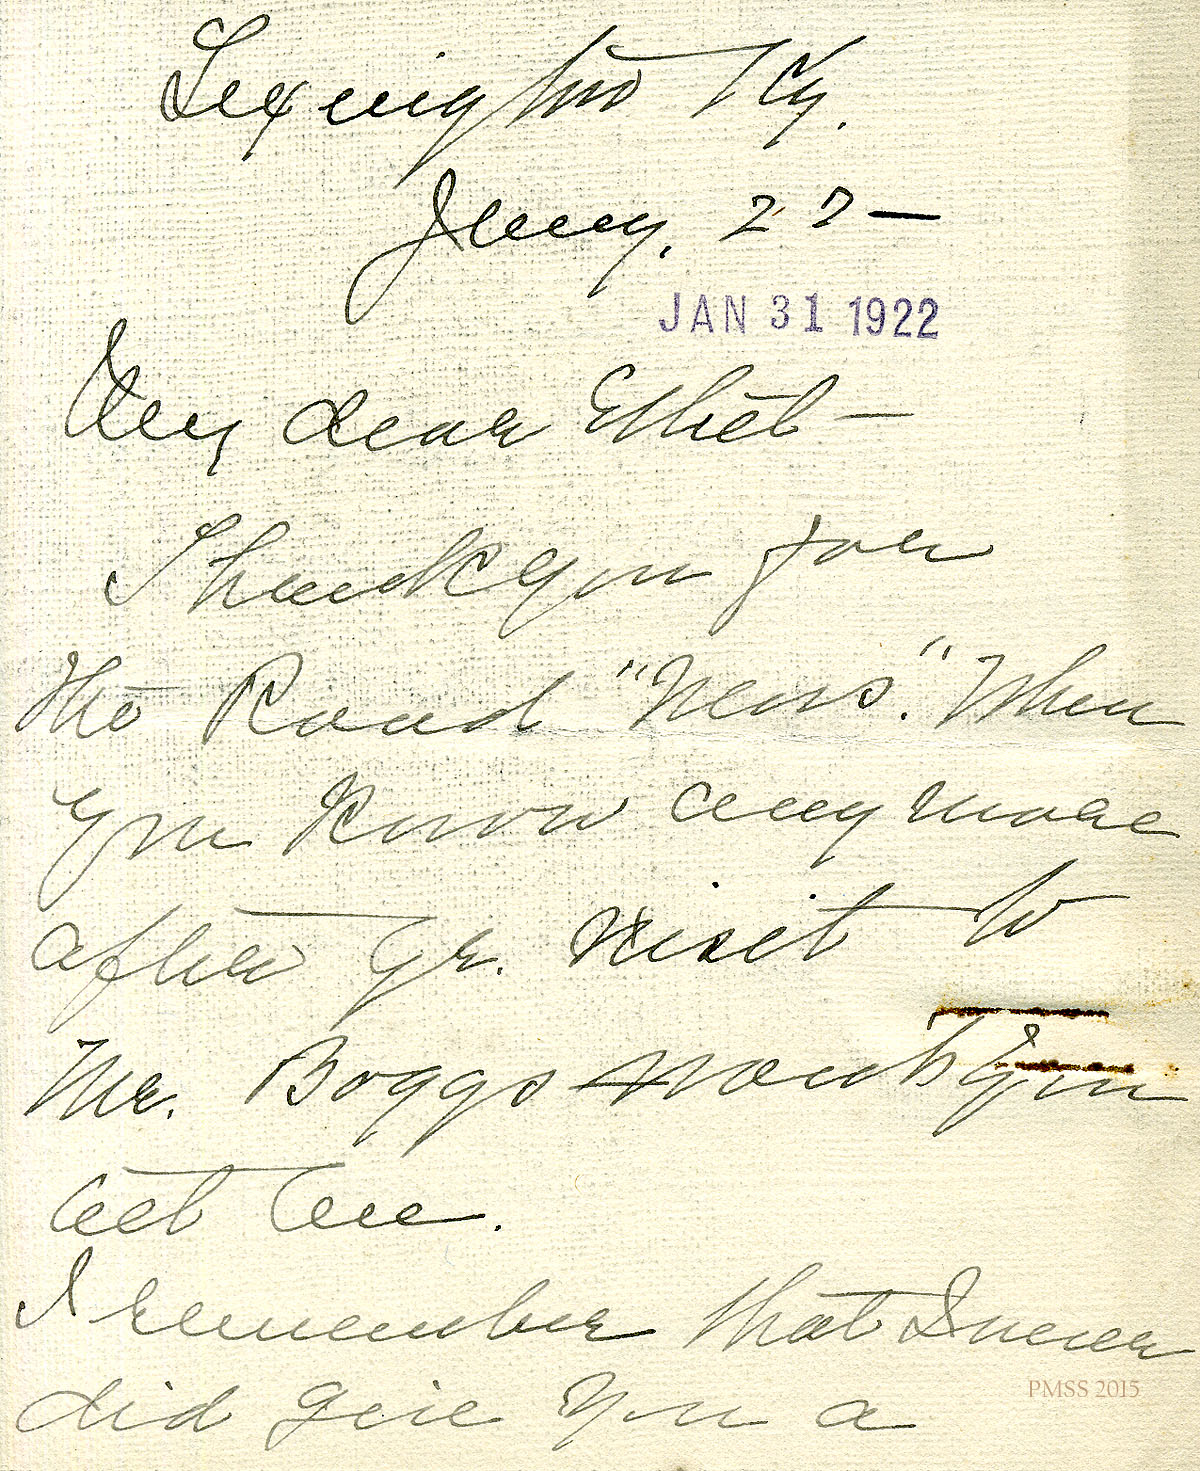 Lexington Ky.
Jany. 27—
JAN 31 1922
My dear Ethel—
Thank you for
the Road "News". When
you know any more
after yr. visit to
Mr. Boggs won't you
let me.
I remember that I never
did give you a
PMSS 2015